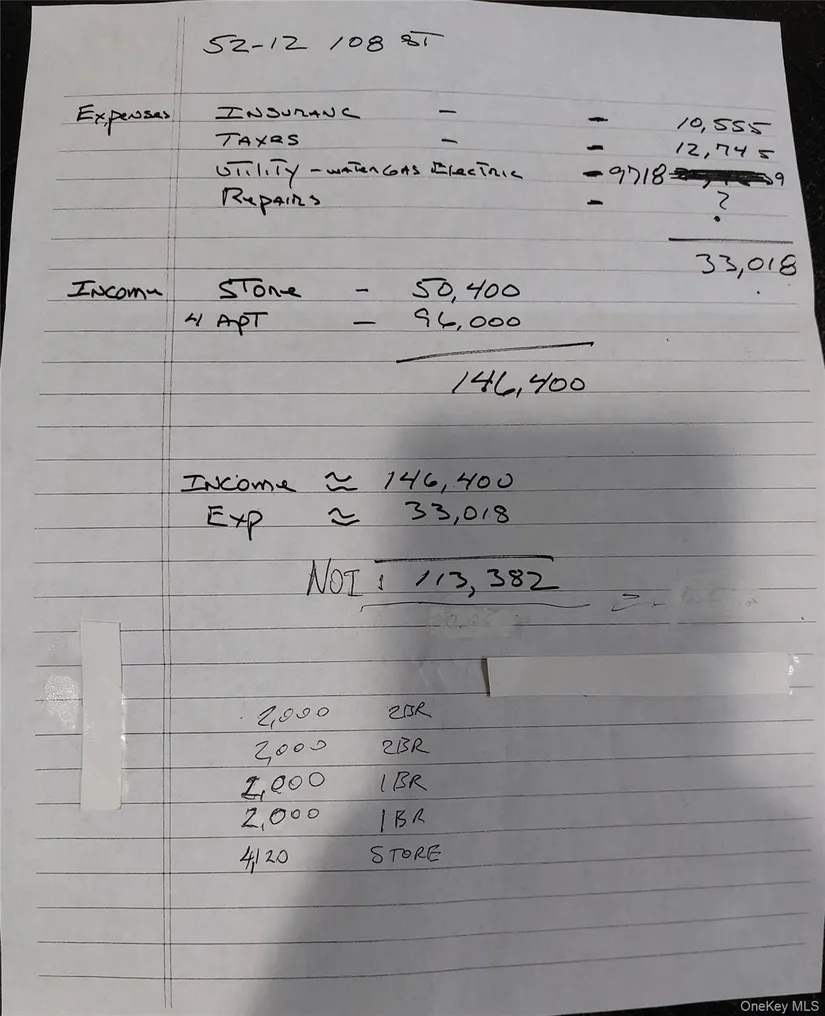 52-12 108 ST
Expenses INSURANC - - 10,555
TAXES - - 12,745
UTILITY - WATER GAS Electric - 9718 9
Repairs - ?
33,018
INCome STore - 50,400
4 APT - 96,000
146,400
INCome ≈ 146,400
Exp ≈ 33,018
NOI : 113,382
2,000 2BR
2,000 2BR
2,000 1BR
2,000 1BR
4,120 STORE
OneKey MLS